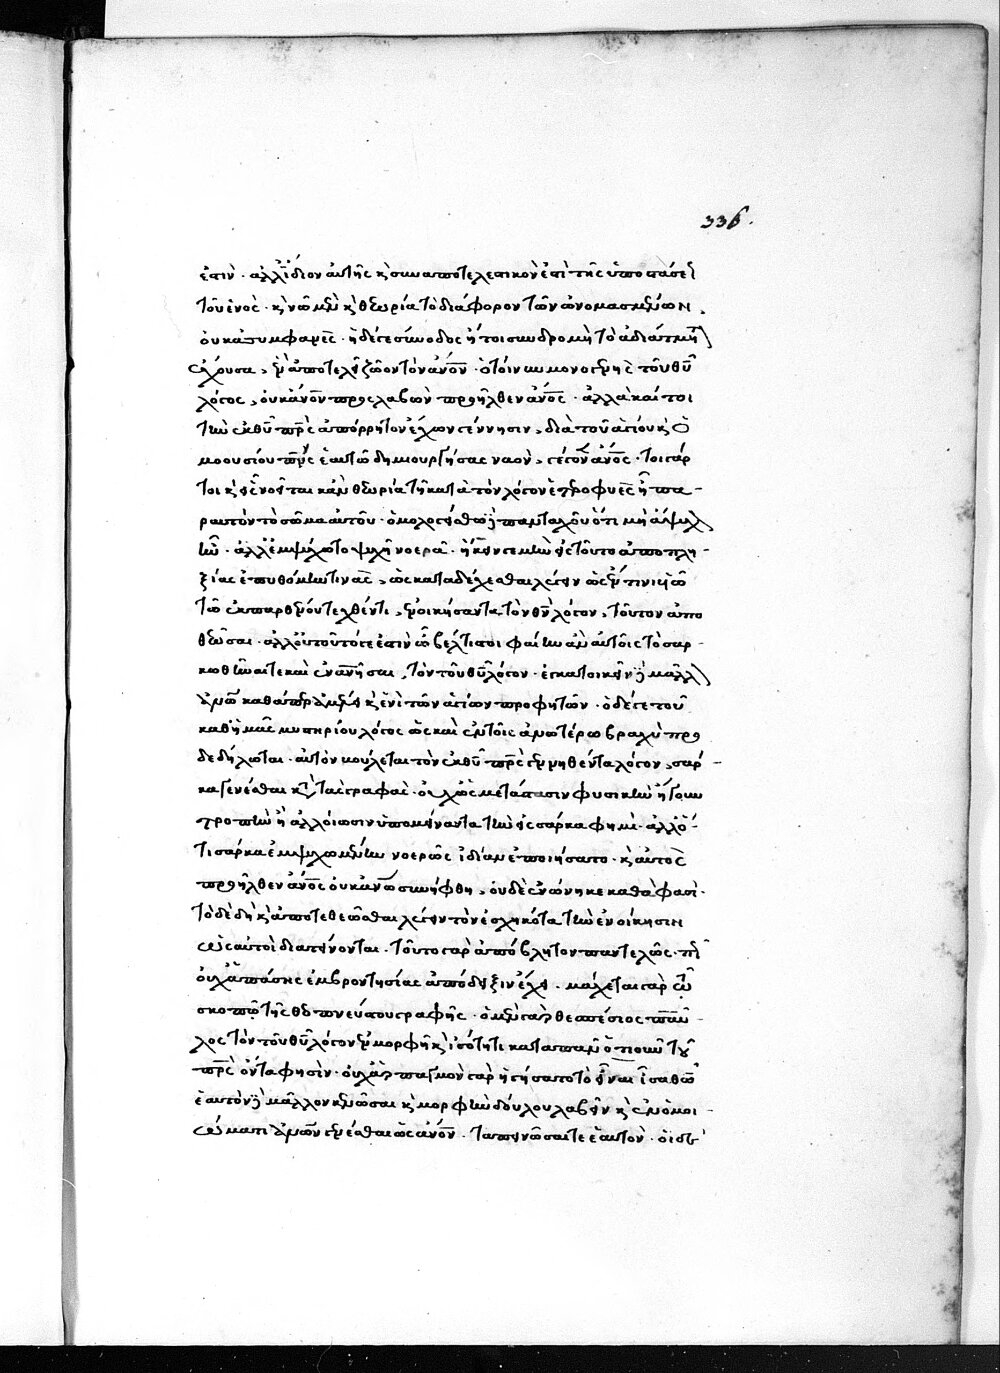 336.
ἐστιν · ἀλλ' ἴδιον αὐτῆς κ συναποτελεστικὸν ἐστὶ τῆς ὑποστάσε
τοῦ ἑνὸς · κ νῶ μὲν κ θεωρία τὸ διάφορον τῶν ὠνομασμένων.
οὐκ ἀσυμφανὲς · ἡ δέ γε σύνοδος ἤτοι συνδρομὴ τὸ ἀδιάτμη
ἔχουσα, ἕνα ἀποτελεῖ ζῶον τὸν ἄνον · ὁ τοίνυν μονογενὴς τοῦ θυ
λόγος, οὐκ ἄνον προσλαβὼν προῆλθεν ἄνος · ἀλλὰ καίτοι
τὴν ἐκ θυ πρς ἀπόρρητον ἔχων γέννησιν, διὰ τοῦ ἁγίου κ ὁ
μοουσίου πνς ἑαυτῶ δημιουργήσας ναὸν, γέγονεν ἄνος · τοιγάρ
τοι κ εἷς νοεῖται κἂν θεωρία τῆ κατὰ τὸν λόγον ἑτεροφυὲς ἦ πα-
ρ' αὐτὸν τὸ σῶμα αὐτοῦ · ὁμολογείσθω δὲ πανταχοῦ ὅτι μὴ ἄψυχ
ἦν · ἀλλ' ἐμψύχωτο ψυχῆ νοερᾶ · ἤκειν γε μὴν εἰς τοῦτο ἀποπλη-
ξίας ἐπυθόμην τινὰς, ὡς καταδέχεσθαι λέγειν ὡς ἕν τινι
τῶ ἐκ παρθένου τεχθέντι, ἐνοικήσαντα τὸν θυ λόγον, τοῦτον ἀπο
θεῶσαι · ἀλλ' οὐ τοῦτό γε ἐστὶν ὦ βέλτιστοι φαίην ἂν αὐτοῖς τὸ σαρ-
κωθῆναί τε καὶ ἐνανῆσαι, τὸν τοῦ θυ λόγον · ἐγκατοικεῖν δὲ μᾶλλ
ἀνω καθάπερ ἀμέλει κ ἑνὶ τῶν ἁγίων προφητῶν · ὁ δέ γε τοῦ
καθ' ἡμᾶς μυστηρίου λόγος ὡς καὶ ἐν τοῖς ἀνωτέρω βραχὺ προ
δεδήλωται · αὐτὸν βούλεται τὸν ἐκ θυ πρς γεννηθέντα λόγον, σάρ-
κα γενέσθαι κτ τὰς γραφάς · οὐχ ὡς μετάστασιν φυσικὴν ἤγουν
τροπὴν ἢ ἀλλοίωσιν ὑπομείναντα τὴν εἰς σάρκα φημὶ · ἀλλ' ὅ-
τι σάρκα ἐμψυχωμένην νοερῶς ἰδίαν ἐποιήσατο · κ αὐτὸς
προῆλθεν ἄνος οὐκ ἄνω συνήφθη, οὐδὲ ἐνώκηκε καθά φασι ·
τὸ δὲ δὴ κ ἀποτεθεῶσθαι λέγειν τὸν ἐσχηκότα τὴν ἐνοίκησιν
ὡς αὐτοὶ διατείνονται · τοῦτο γὰρ ἀπόβλητον παντελῶς ·
οὐχ ἁπάσης ἐμβροντησίας ἀπόδειξιν ἔχει · μάχεται γὰρ
σκοπῶ τῆς θεοπνεύστου γραφῆς · ὁ μὲν γὰρ θεσπέσιος παῦ-
λος τὸν τοῦ θυ λόγον ἐν μορφῆ κ ἰσότητι κατὰ πᾶν ὁτιοῦν τοῦ
πρς ὄντα φησὶν · οὐχ ἁρπαγμὸν γὰρ ἡγήσατο τὸ εἶναι ἴσα θῶ
ἑαυτὸν δὲ μᾶλλον κενῶσαι κ μορφὴν δούλου λαβεῖν κ ἐν ὁμοι-
ώματι ἀνων γενέσθαι ὡς ἄνον · ταπεινῶσαί τε ἑαυτὸν · οἱ δὲ